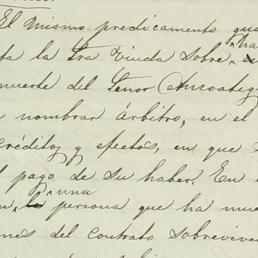 El mismo predicamento que
ha
ta la Sra Viuda sobre
muerte del Señor Anzoateg
nombrar árbitro, en el
créditos y efectos, en que
pago de su haber. En e
una
persona que ha mue
nes del contrato sobrevive